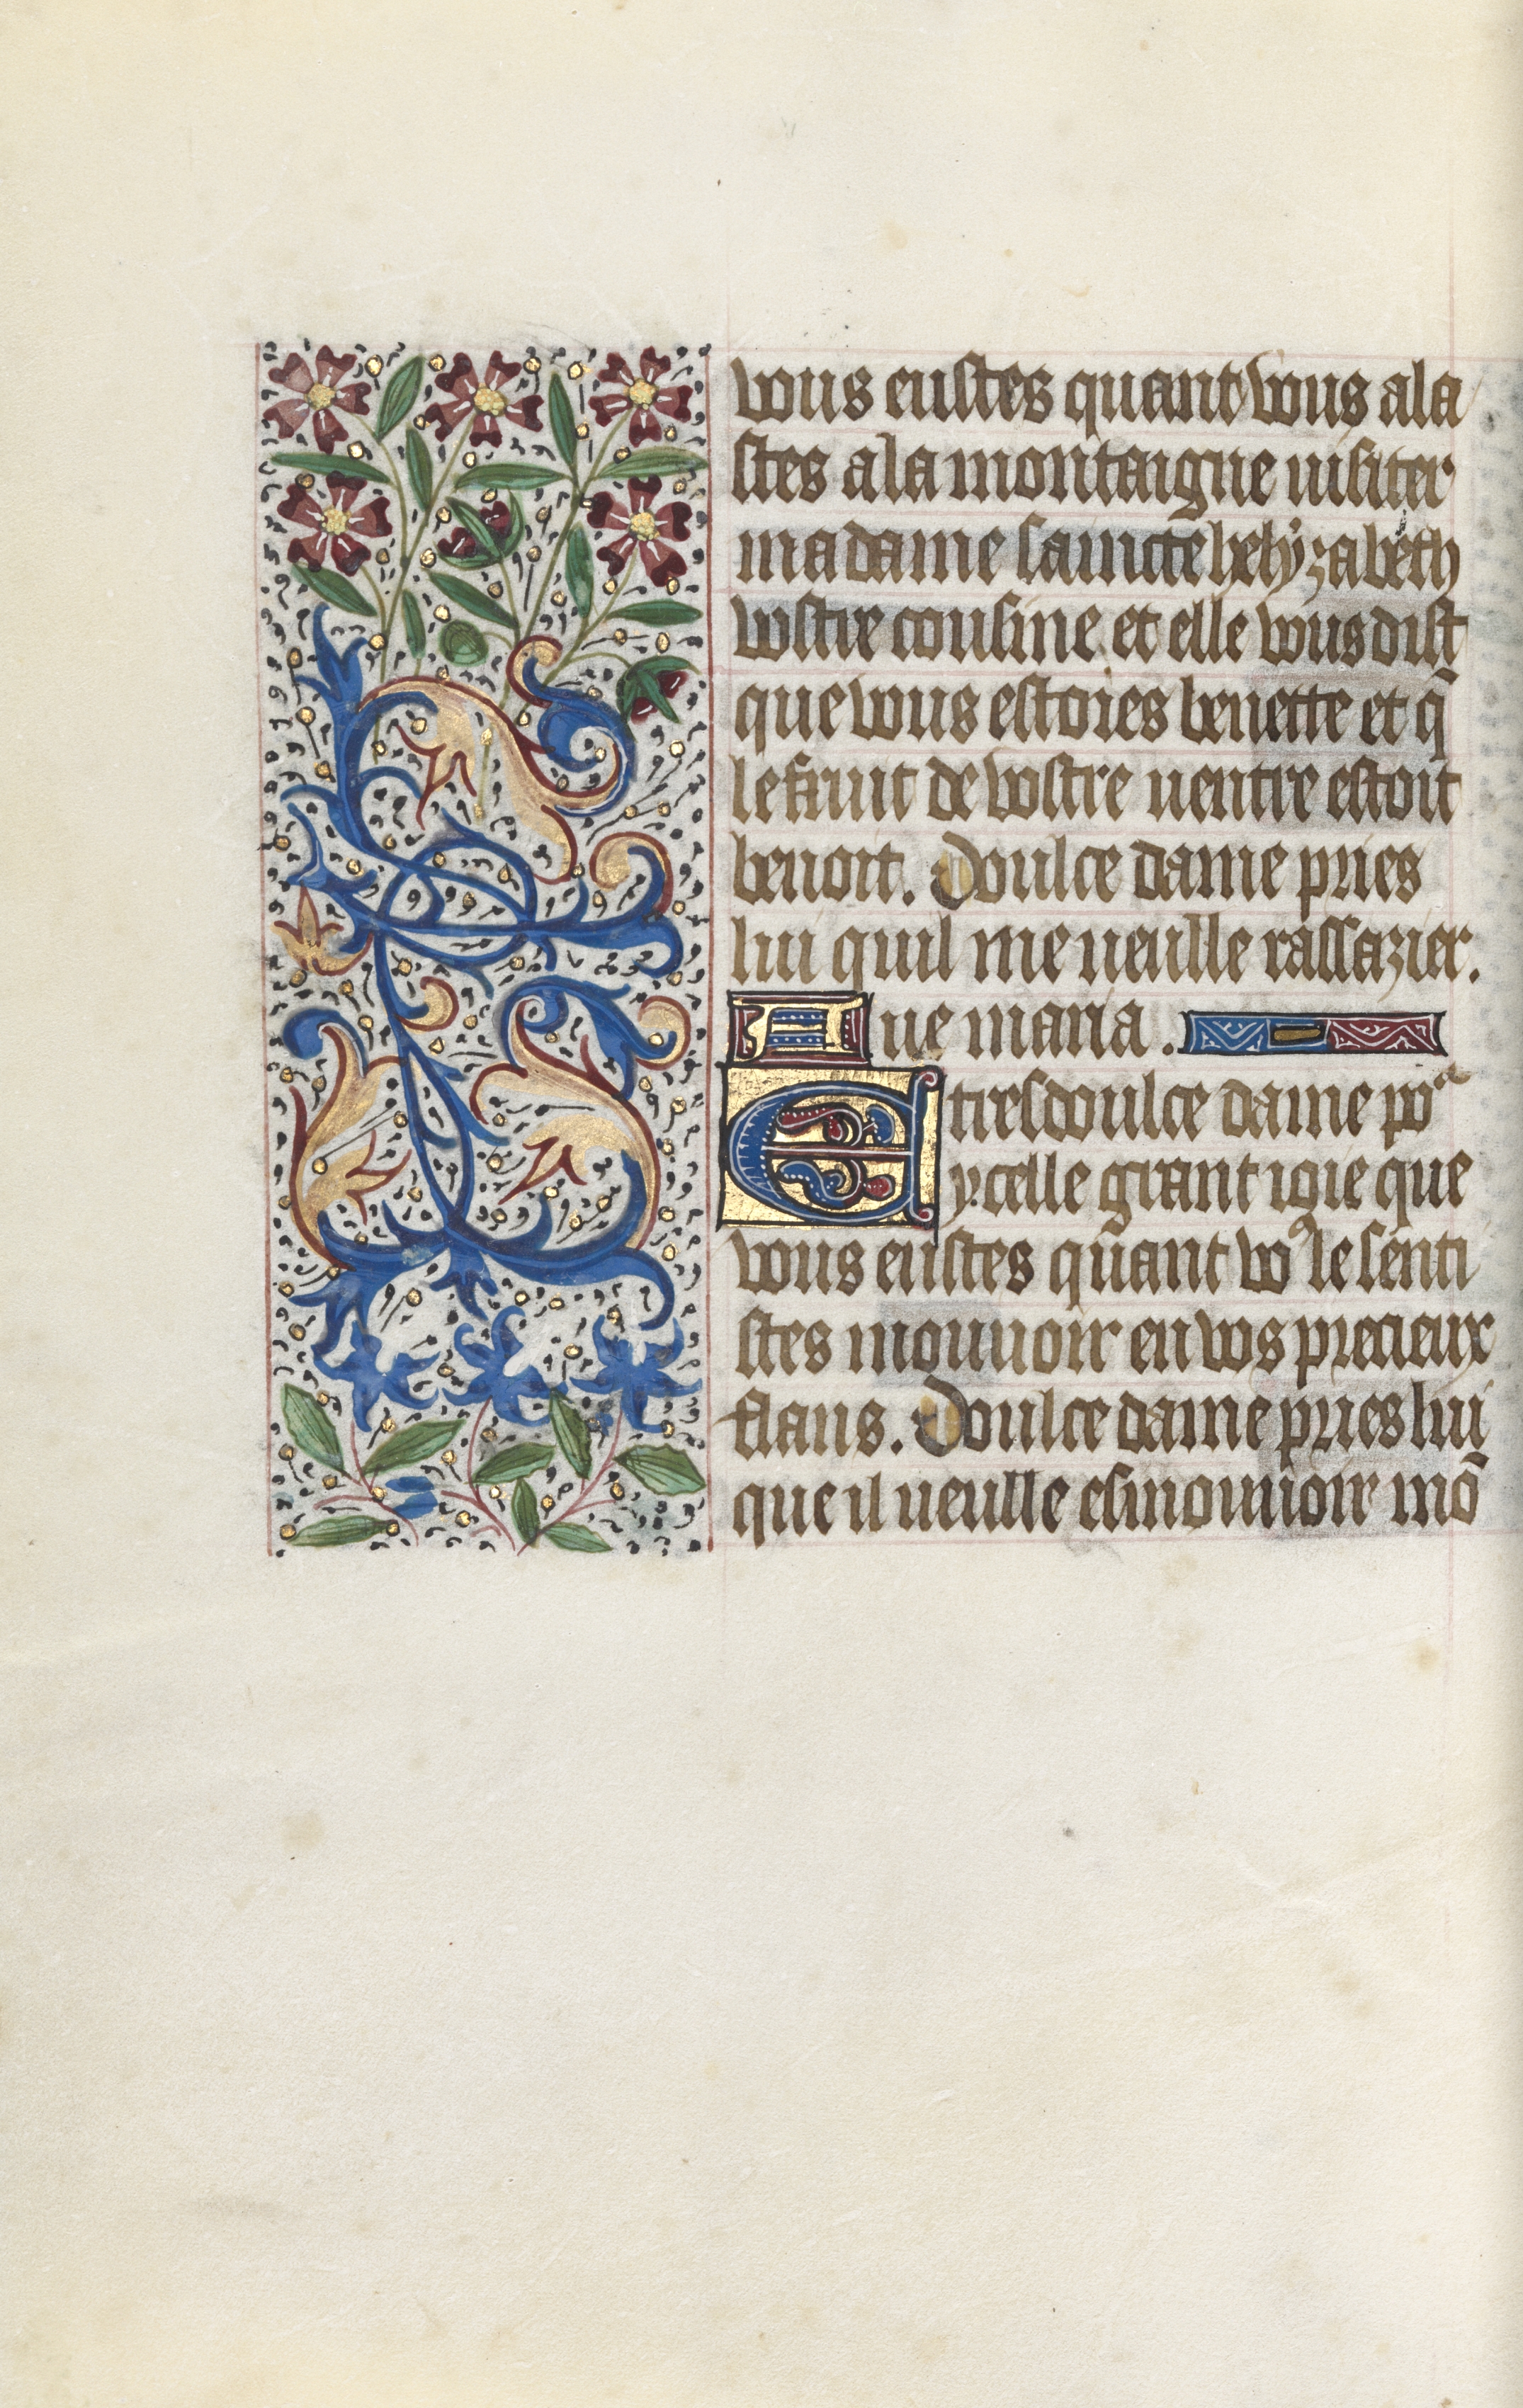 vous eustes quant vous ala
stes a la montaigne uisiter
ma dame saincte helyzabeth
vostre cousine et elle vous dist
que vous estoies benette et q̄
le fruit de vostre uentre estoit
benoit. Doulce dame pries
lui quil me ueulle rassazier.
Aue maria.
E tresdoulce dame por
ycelle grant ioie que
vous eustes quant voꝰ le senti
stes mouuoir en vos precieux
flans. Doulce dame pries lui
que il ueulle esmouuoir mō